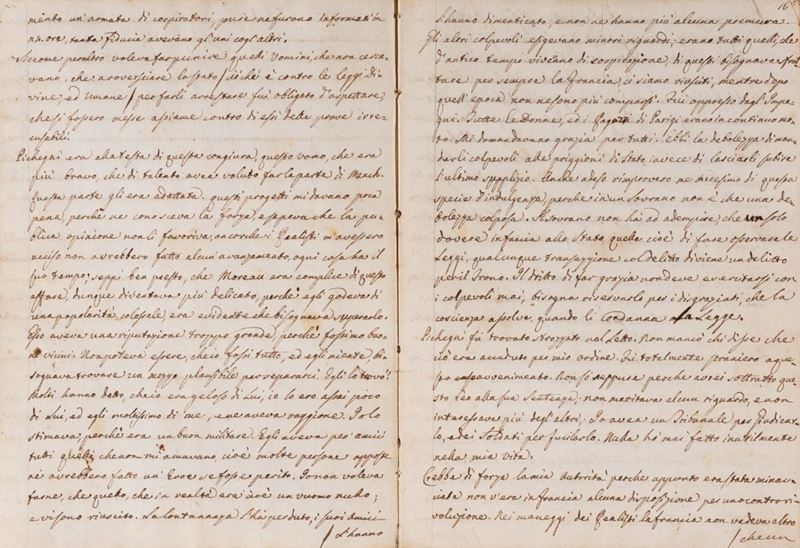 mento un'armata di cospiratori, pure ne furono informati in
num.ore, tanta fiducia avevano gl'uni cogl'altri.
Siccome peraltro voleva far punire quelli Uomini, che non cerca-
vano, che a roversiare lo stato / ciò che è contro le Leggi di-
vine, ed umane / per farli arrestare fui obligato d'aspettare,
che si fossero messe assieme contro di essi delle prove irre-
cusabili.
Pichegrù era alla testa di questa congiura, questo uomo, che era
più bravo, che di talento avea voluto far la parte di Monck.
Questa parte gli era adattata. Questi progetti mi davano poca
pena, perchè ne conosceva la forza, e sapeva che la pu-
blica opinione non li favoriva; ancorche i Realisti m'avessero
ucciso non avrebbero fatto alcun avanzamento, ogni cosa ha il
suo tempo; seppi ben presto, che Moreau era complice di questo
affare, dunque diventava più delicato, perchè egli godeva di
una popolarità colossale, era evidente che bisognava superarlo.
Esso aveva una riputazione troppo grande, perchè fossimo buo-
ni vicini. Non poteva essere, che io fossi tutto, ed egli niente, bi-
sognava trovare un mezzo plausibile per separarci. Egli lo trovò!
Molti hanno detto, che io era geloso di Lui, io lo era assai poco
di Lui, ed egli moltissimo di me, e ne aveva raggione. Io lo
stimava, perchè era un buon militare. Egli aveva per amici
tutti quelli che non mi amavano, cioè molte persone, appose
ne avrebbero fatto un Eroe se fosse perito. Io non voleva
farne, che quello, che in realtà era cioè un uomo nullo;
e vi sono riuscito. La lontananza l'hà perduto, i suoi Amici
/ l'hanno
16
l'hanno dimenticato, e non ne hanno più alcuna premura.
Gli altri colpevoli esigevano minori riguardi; erano tutti quelli, che
d'antico tempo vivevano di cospirazione, di questi bisognava sfrut-
tare per sempre la Francia, ci siamo riusciti, mentre dopo
quell'epoca non ne sono più comparsi. Fui appresso dagl'Impe-
gni. Tutte le Donne, ed i di Parigi erano in continuo mo-
to. Mi domandavano grazia per tutti. Ebbi la debolezza di man-
darli colpevoli alle priggioni di Stato invece di lasciarli subire
l'ultimo supplizio. Anche adesso rimprovero me medesimo di questa
specie d'indulgenza, perchè in un Sovrano non è che una de-
bolezza colposa. Il Sovrano non hà ad adempire, che un solo
dovere in faccia allo Stato quello cioè di fare osservare le
Leggi, qualunque transazzione col delitto diviene un delitto
per il Trono. Il dritto di far grazia non deve esercitarsi con
i colpevoli mai, bisogna riservarlo per i disgraziati, che la
coscienza assolve, quando li condanna la Legge.
Pichegrù fu trovato strozzato nel Letto. Non mancò chi disse che
ciò era accaduto per mio ordine. Fui totalmente straniero a que-
sto avvenimento. Non sò neppure perche avrei sottratto que-
sto reo alla sua Sentenza; non meritava alcun riguardo, e non
interessava più degl'altri; Io avea un Tribunale per giudicar-
lo, e dei Soldati per fucilarlo. Nulla ho mai fatto inutilmente
nella mia vita.
Crebbe di forza la mia Autorità perche appunto era stata minac-
ciata non v'era in francia alcuna disposizione per una controri-
voluzione. Nei maneggi dei Realisti la francia non vedeva altro
/ che un